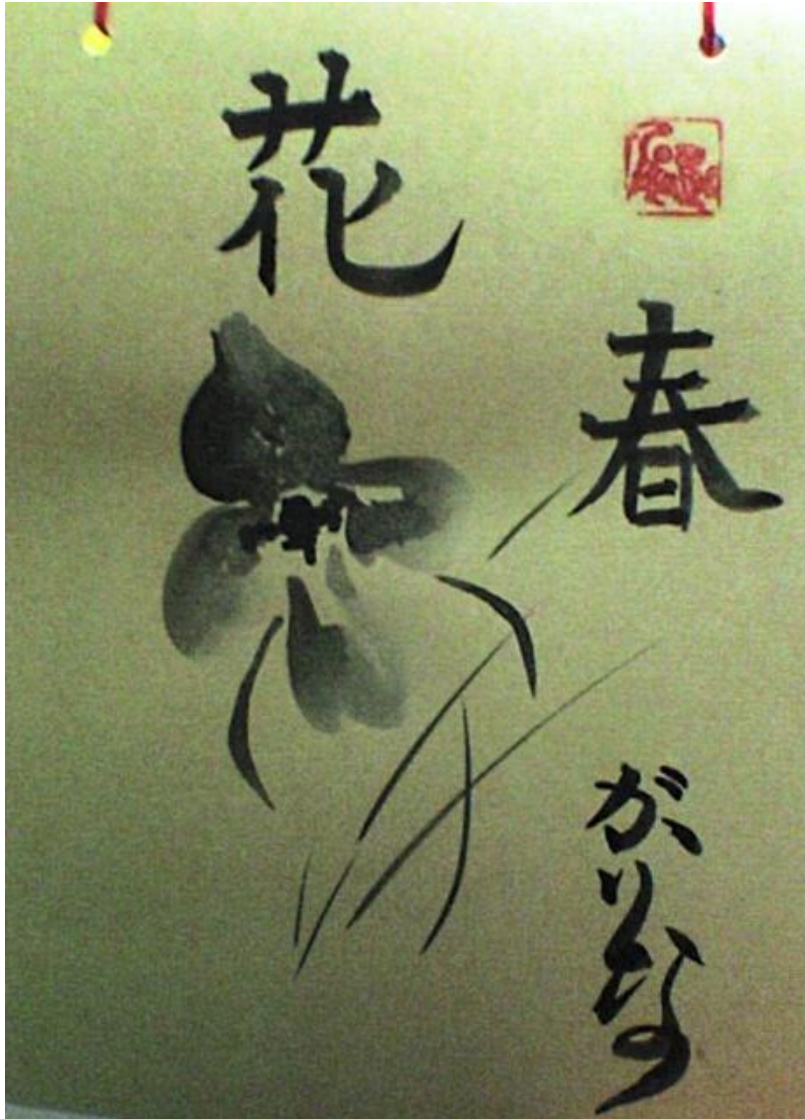 春
がりな
花